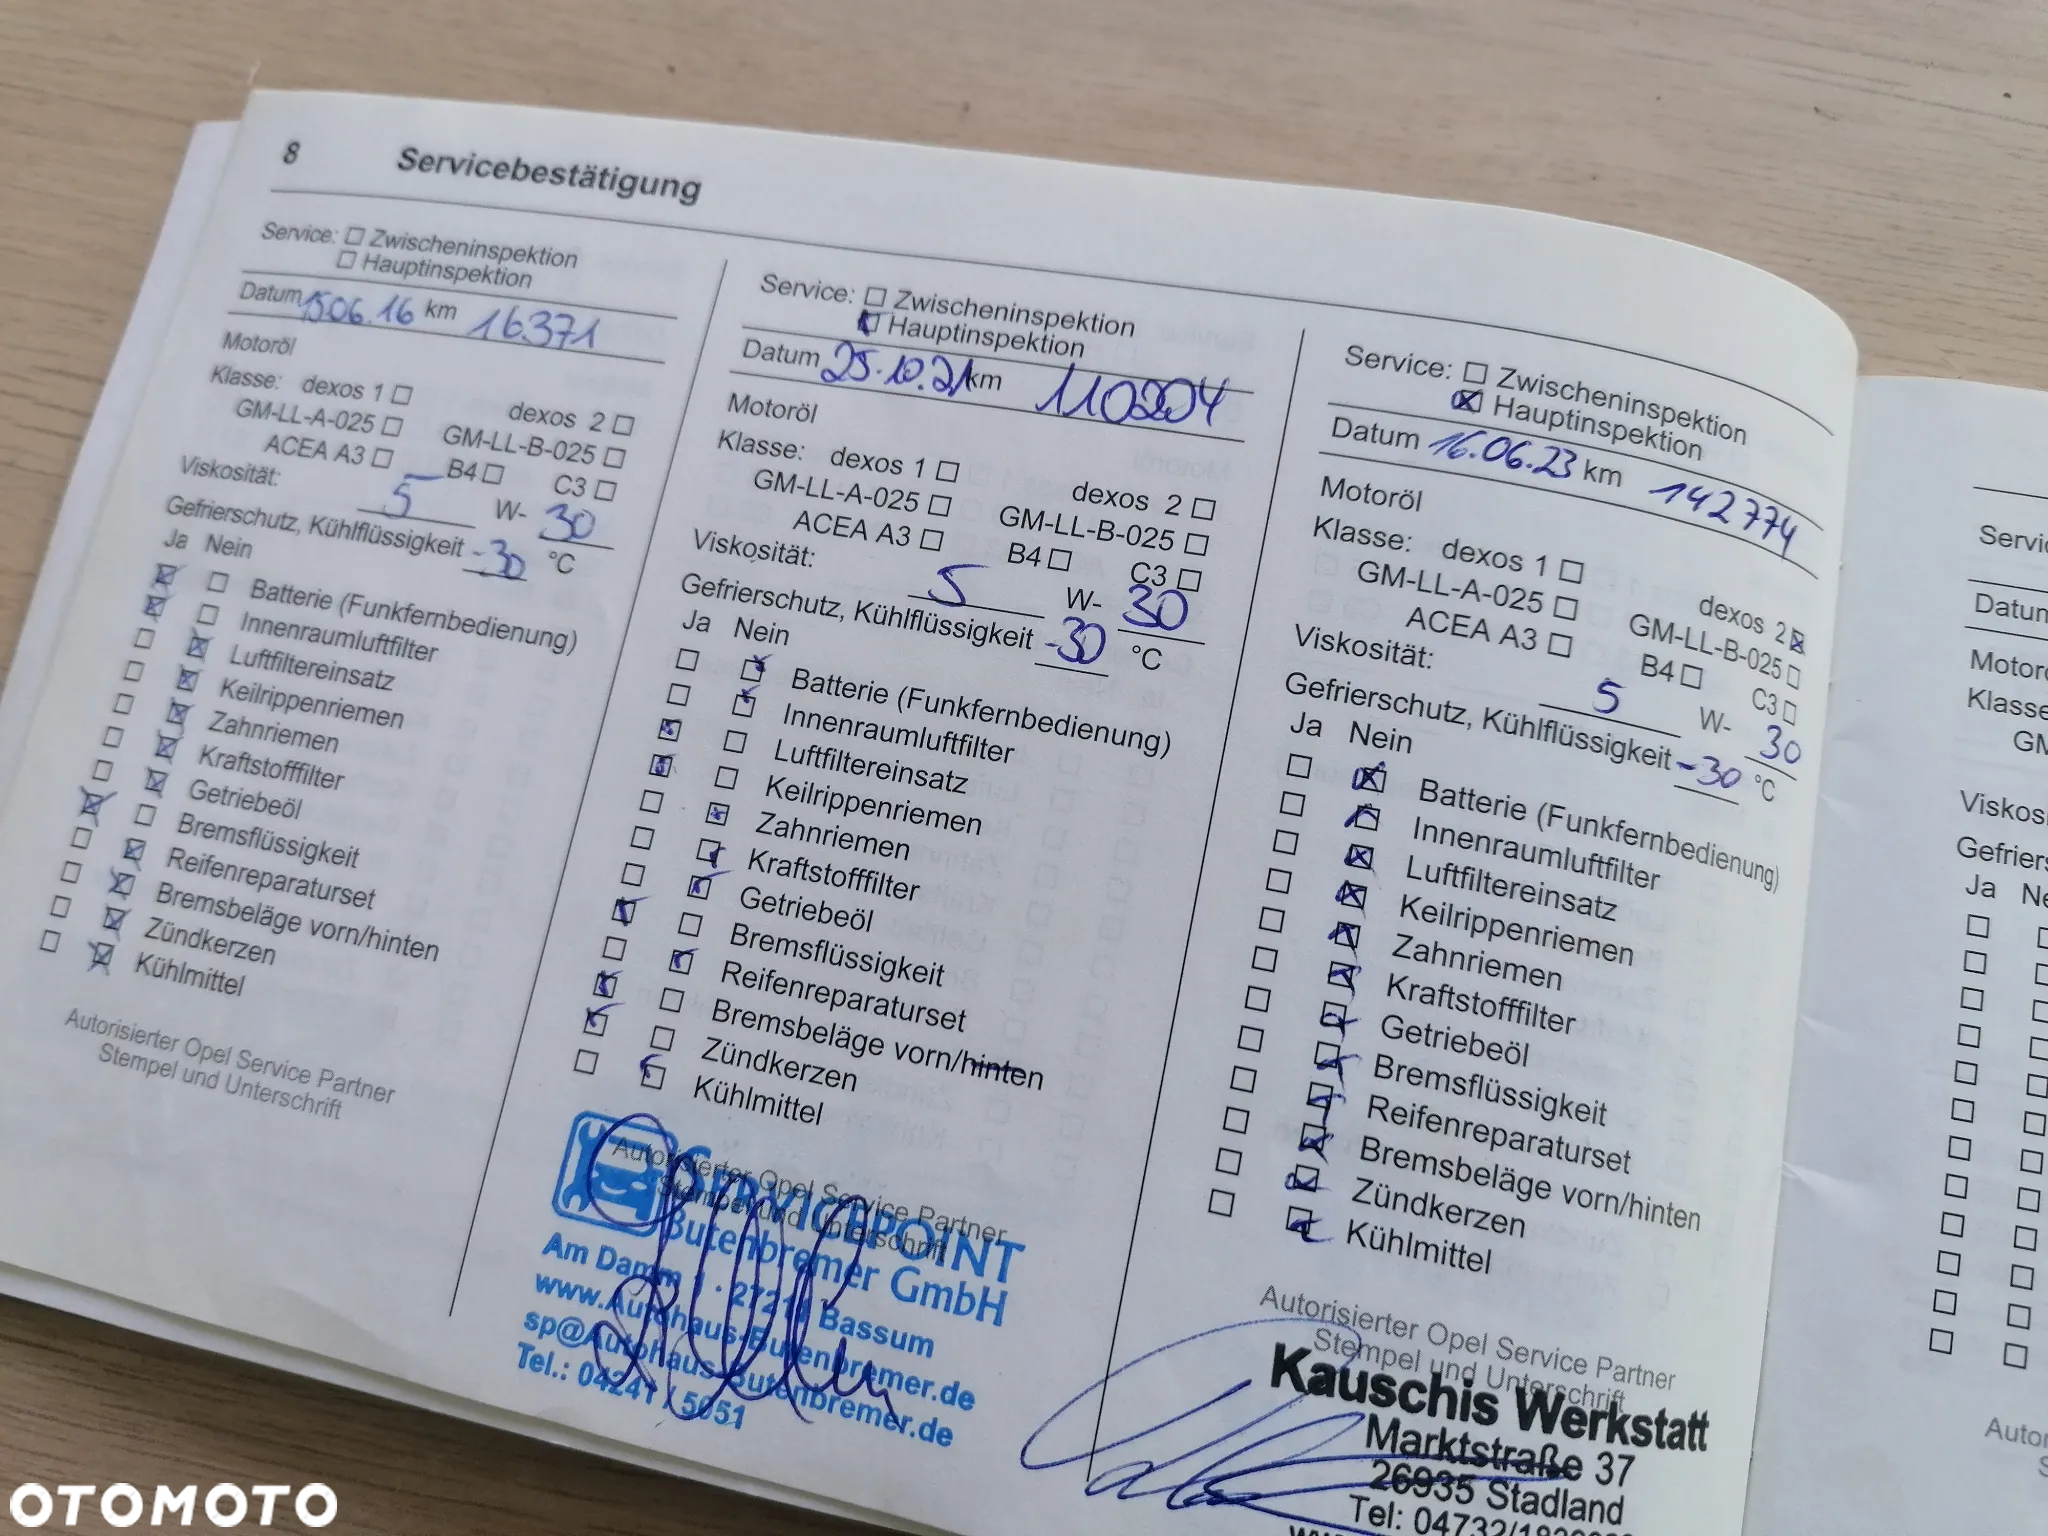 8 Servicebestätigung
Service: Zwischeninspektion
Hauptinspektion
Datum 15.06.16 km 16.371
Motoröl
Klasse: dexos 1 dexos 2
GM-LL-A-025 GM-LL-B-025
ACEA A3 B4 C3
Viskosität: 5 W- 30
Gefrierschutz, Kühlflüssigkeit -30 °C
Ja Nein
Batterie (Funkfernbedienung)
Innenraumluftfilter
Luftfiltereinsatz
Keilrippenriemen
Zahnriemen
Kraftstofffilter
Getriebeöl
Bremsflüssigkeit
Reifenreparaturset
Bremsbeläge vorn/hinten
Zündkerzen
Kühlmittel
Autorisierter Opel Service Partner
Stempel und Unterschrift
Service: Zwischeninspektion
Hauptinspektion
Datum 25.10.21 km 110204
Motoröl
Klasse: dexos 1 dexos 2
GM-LL-A-025 GM-LL-B-025
ACEA A3 B4 C3
Viskosität: 5 W- 30
Gefrierschutz, Kühlflüssigkeit -30 °C
Ja Nein
Batterie (Funkfernbedienung)
Innenraumluftfilter
Luftfiltereinsatz
Keilrippenriemen
Zahnriemen
Kraftstofffilter
Getriebeöl
Bremsflüssigkeit
Reifenreparaturset
Bremsbeläge vorn/hinten
Zündkerzen
Kühlmittel
Autorisierter Opel Service Partner
Stempel und Unterschrift
SERVICEPOINT
Butenbremer GmbH
Am Damm 1 · 27211 Bassum
www.Autohaus-Butenbremer.de
sp@Autohaus-Butenbremer.de
Tel.: 04241 / 5051
Service: Zwischeninspektion
Hauptinspektion
Datum 16.06.23 km 142774
Motoröl
Klasse: dexos 1 dexos 2
GM-LL-A-025 GM-LL-B-025
ACEA A3 B4 C3
Viskosität: 5 W- 30
Gefrierschutz, Kühlflüssigkeit -30 °C
Ja Nein
Batterie (Funkfernbedienung)
Innenraumluftfilter
Luftfiltereinsatz
Keilrippenriemen
Zahnriemen
Kraftstofffilter
Getriebeöl
Bremsflüssigkeit
Reifenreparaturset
Bremsbeläge vorn/hinten
Zündkerzen
Kühlmittel
Autorisierter Opel Service Partner
Stempel und Unterschrift
Kauschis Werkstatt
Marktstraße 37
26935 Stadland
Tel: 04732/
Servi
Datum
Motor
Klasse
GM
Viskos
Gefriers
Ja Ne
Autor
S
OTOMOTO